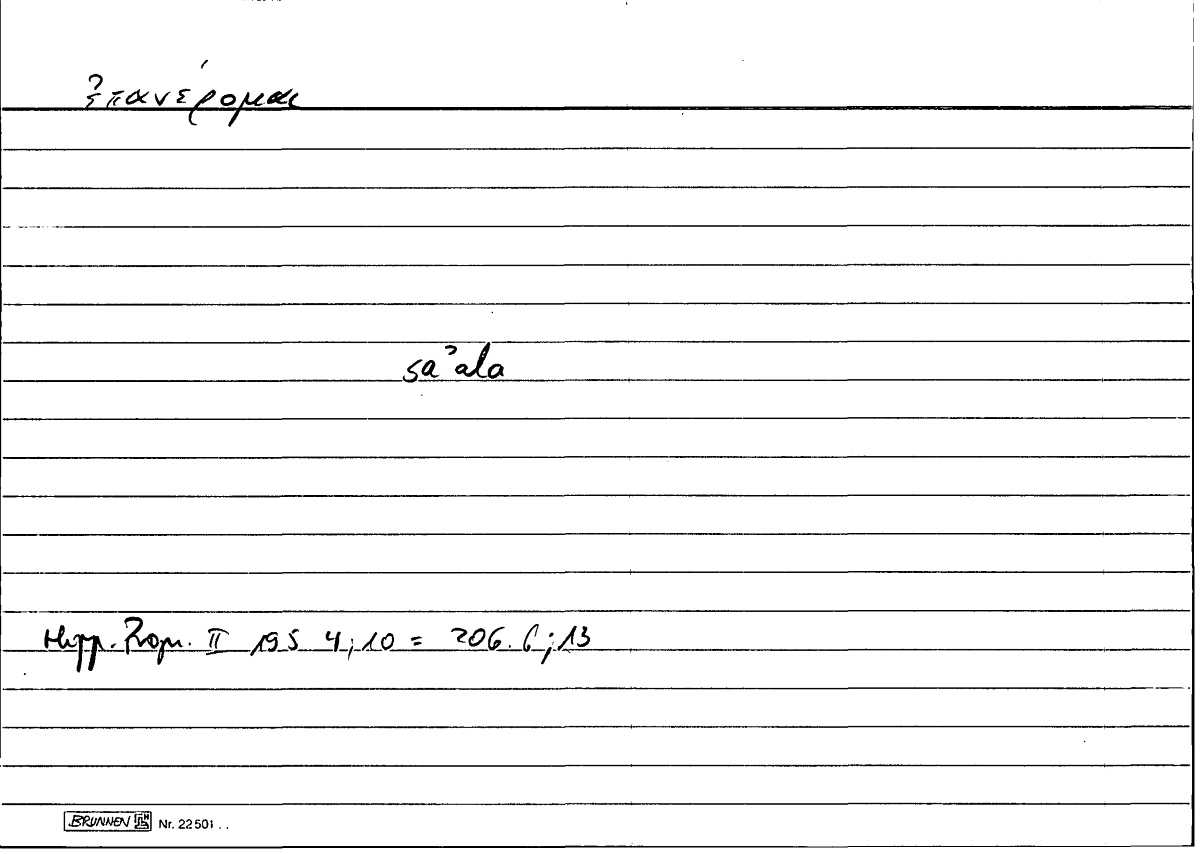 ἐπανέρομαι
saʾala
Hipp. Progn. II 195 4; 10 = 206. 6; 13
BRUNNEN Nr. 22501 . .